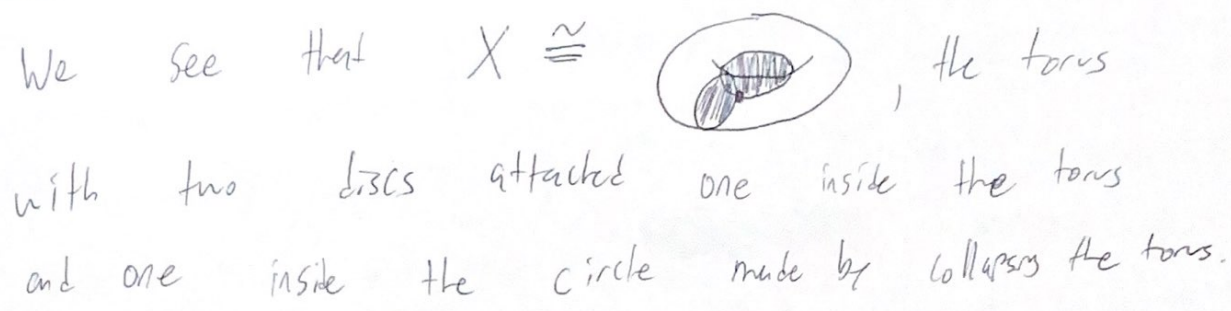 We see that X ≅ , the torus
with two discs attached one inside the torus
and one inside the circle made by collapsing the torus.